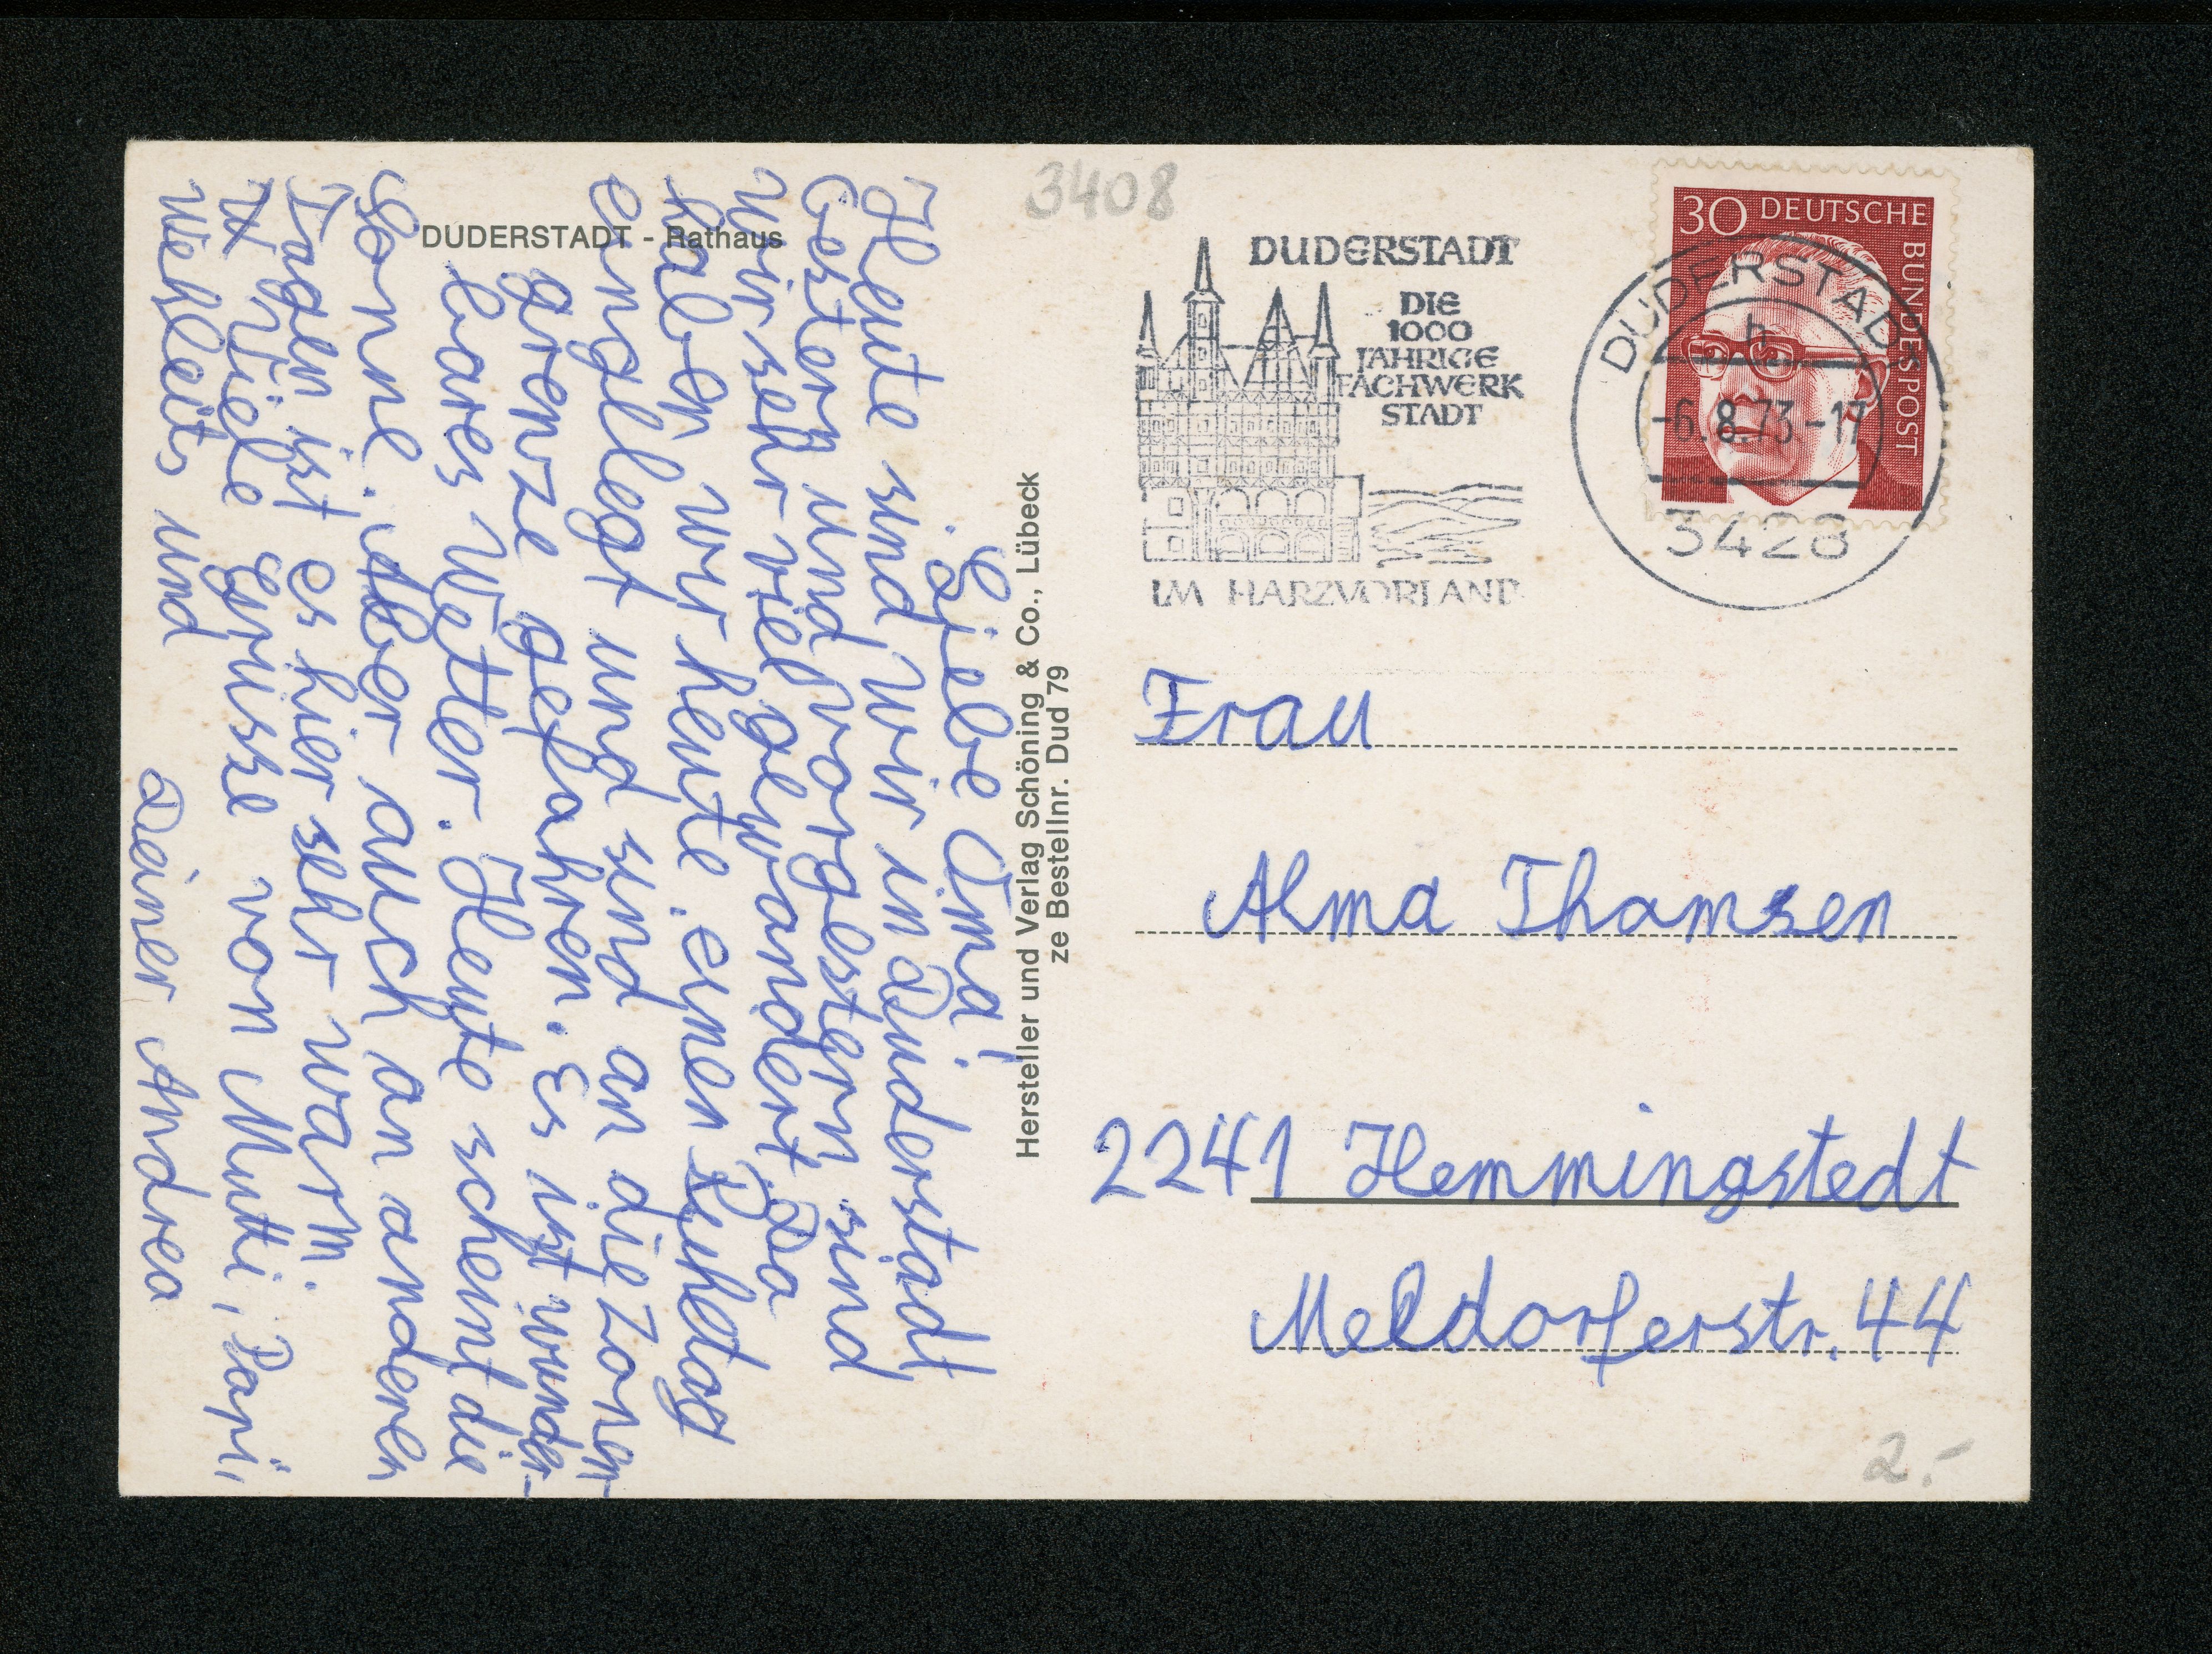 DUDERSTADT - Rathaus
Liebe Oma!
Heute sind wir in Duderstadt
Gestern und vorgestern sind
wir sehr viel gewandert. Da
haben wir heute einen Ruhetag
eingelegt und sind an die Zonen-
grenze gefahren. Es ist wunder-
bares Wetter. Heute scheint die
Sonne. Aber auch an anderen
Tagen ist es hier sehr warm.
Viele Grüsse von Mutti, Papi,
Wehleits und
Deiner Andrea
Hersteller und Verlag Schöning & Co., Lübeck
ze Bestellnr. Dud 79
3408
DUDERSTADT
DIE
1000
JÄHRIGE
FACHWERK
STADT
IM HARZVORLAND
30 DEUTSCHE BUNDESPOST
DUDERSTADT
h
-6.8.73-17
3428
Frau
Alma Thamsen
2241 Hemmingstedt
Meldorferstr. 44
2.-